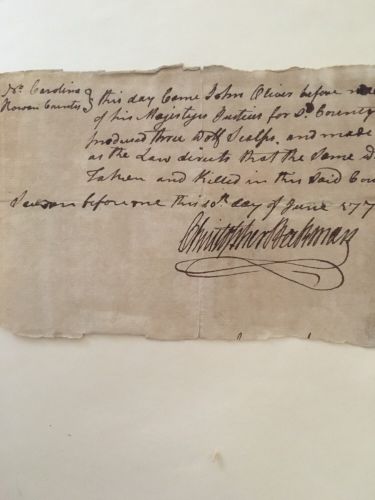 No. Carolina } this day Came John Oliver before me
Rowan County } of his Majestys Justices for Sd. County
produced three Wolf Scalps, and made
as the Law directs that the Same
Taken and Killed in this Said Cou
Sworn before me this 10th day of June 177
Christopher Beekman